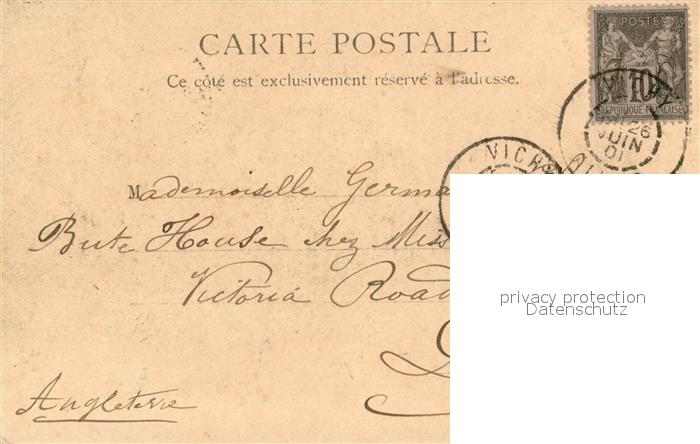 CARTE POSTALE
Ce côté est exclusivement réservé à l'adresse.
POSTE
10
REPUBLIQUE FRANCAISE
VICHY
26
JUIN
01
VICHY
Mademoiselle Germa
Bute House chez Miss
Victoria Road
Angleterre
privacy protection
Datenschutz